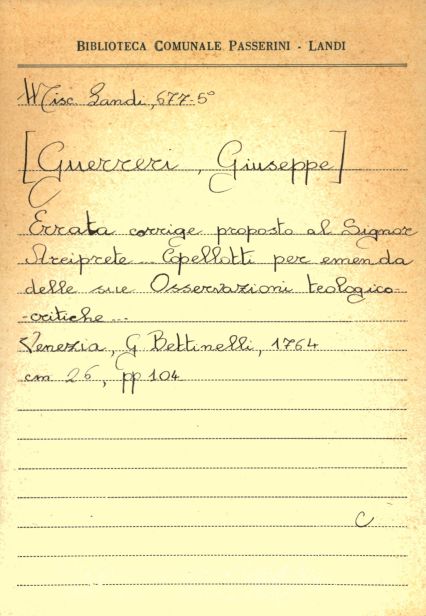 BIBLIOTECA COMUNALE PASSERINI - LANDI
Misc. Landi, 677-5°
[Guerreri, Giuseppe]
Errata corrige proposto al Signor
Arciprete ... Copellotti per emenda
delle sue Osservazioni teologico-
-critiche ...
Venezia, G. Bettinelli, 1764
cm 26, pp 104
C